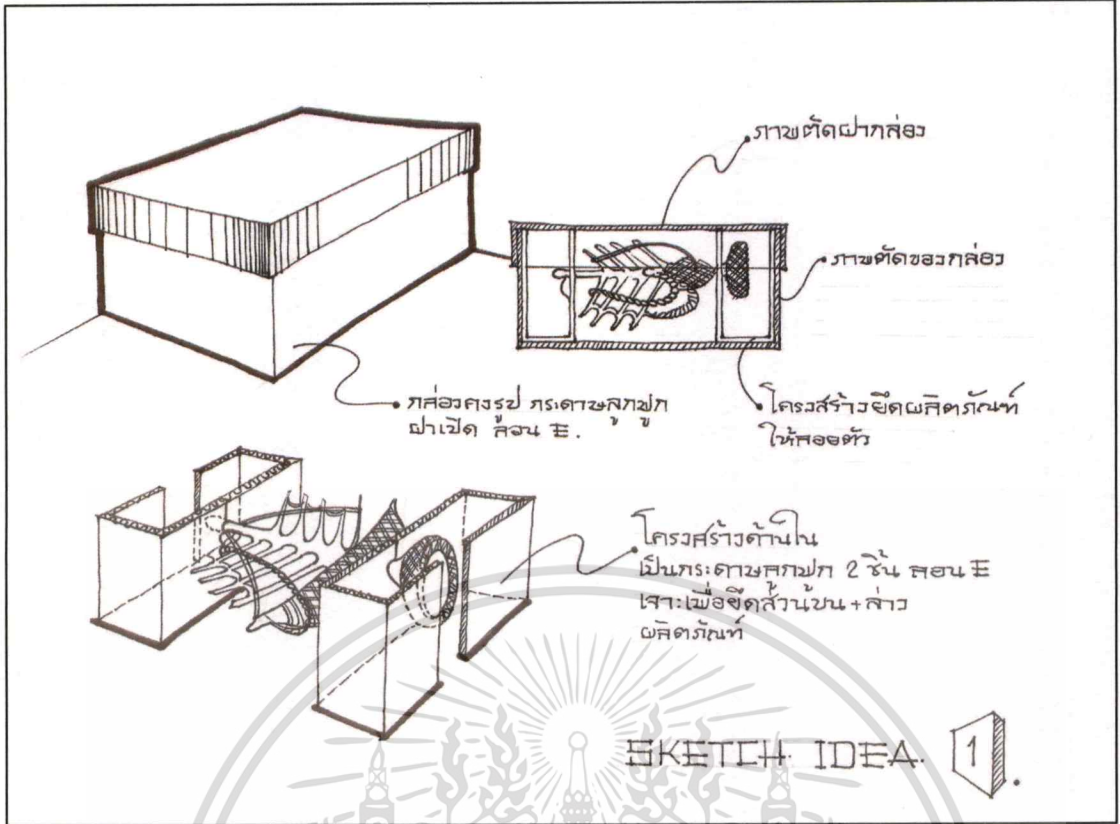 ภาพตัดฝากล่อง
ภาพตัดของกล่อง
กล่องคงรูป กระดาษลูกฟูก
ฝาเปิด ลอน E.
โครงสร้างยึดผลิตภัณฑ์
ให้ลอยตัว
โครงสร้างด้านใน
เป็นกระดาษลูกฟูก 2 ชิ้น ลอน E
เจาะเพื่อยึดส่วนบน+ล่าง
ผลิตภัณฑ์
SKETCH IDEA. 1.